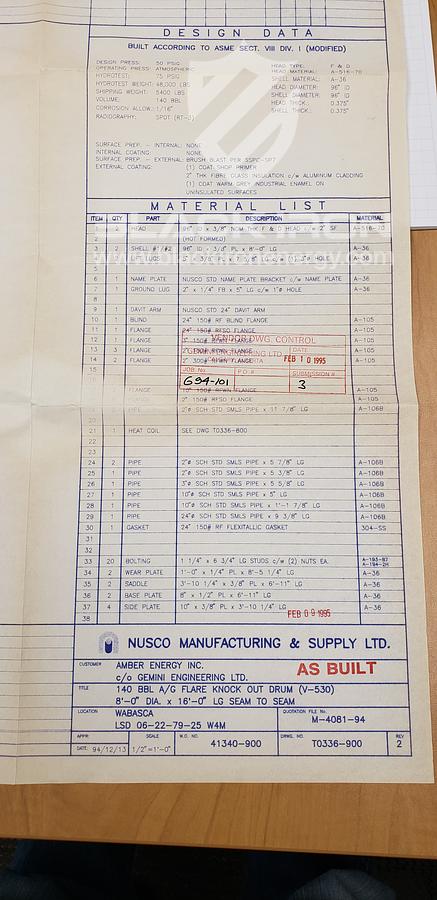 DESIGN DATA
BUILT ACCORDING TO ASME SECT. VIII DIV. I (MODIFIED)
DESIGN PRESS: 50 PSIG
OPERATING PRESS: ATMOSPHERIC
HYDROTEST: 75 PSIG
HYDROTEST WEIGHT: 48,000 LBS
SHIPPING WEIGHT: 5400 LBS
VOLUME: 140 BBL
CORROSION ALLOW.: 1/16"
RADIOGRAPHY: SPOT (RT-3)
HEAD TYPE: F & D
HEAD MATERIAL: A-516-70
SHELL MATERIAL: A-36
HEAD DIAMETER: 96" ID
SHELL DIAMETER: 96" ID
HEAD THICK.: 0.375"
SHELL THICK.: 0.375"
SURFACE PREP. - INTERNAL: NONE
INTERNAL COATING: NONE
SURFACE PREP. - EXTERNAL: BRUSH BLAST PER SSPC-SP7
EXTERNAL COATING: (1) COAT SHOP PRIMER
2" THK FIBRE GLASS INSULATION c/w ALUMINUM CLADDING
(1) COAT WARM GREY INDUSTRIAL ENAMEL ON
UNINSULATED SURFACES
MATERIAL LIST
ITEM QTY PART DESCRIPTION MATERIAL
1 HEAD 96" ID x 3/8" NOM THK F & D HEAD c/w 2" SF A-516-70
2 (HOT FORMED)
3 2 SHELL #1/#2 96" ID x 3/8" PL x 8'-0" LG A-36
LUGS A-36
5
6 1 NAME PLATE NUSCO STD NAME PLATE BRACKET c/w NAME PLATE A-36
7 1 GROUND LUG 2" x 1/4" FB x 5" LG c/w 1"ø HOLE A-36
8
9 1 DAVIT ARM NUSCO STD 24" DAVIT ARM
10 1 BLIND 24" 150# RF BLIND FLANGE A-105
11 1 FLANGE 24" 150# RFSO FLANGE A-105
12 1 FLANGE 3" 150# RFWN FLANGE A-105
13 3 FLANGE 2" 150# FLANGE A-105
14 2 FLANGE 2" 300# RFWN FLANGE A-105
15
VENDOR DWG. CONTROL
DATE
FEB 10 1995
JOB No. P.O.# SUBMISSION #
G94-101 3
FLANGE 10" 150# RFWN FLANGE A-105
FLANGE 2" 150# RFSO FLANGE A-105
2"ø SCH STD SMLS PIPE x 11 7/8" LG A-106B
21 1 HEAT COIL SEE DWG T0336-800
22
23
24 2 PIPE 2"ø SCH STD SMLS PIPE x 5 7/8" LG A-106B
25 1 PIPE 2"ø SCH STD SMLS PIPE x 5 3/8" LG A-106B
26 1 PIPE 3"ø SCH STD SMLS PIPE x 5 5/8" LG A-106B
27 1 PIPE 10"ø SCH STD SMLS PIPE x 5" LG A-106B
28 1 PIPE 10"ø SCH STD SMLS PIPE x 1'-1 7/8" LG A-106B
29 1 PIPE 24"ø SCH STD SMLS PIPE x 9 3/8" LG A-106B
30 1 GASKET 24" 150# RF FLEXITALLIC GASKET 304-SS
31
32
33 20 BOLTING 1 1/4" x 6 3/4" LG STUDS c/w (2) NUTS EA. A-193-B7
A-194-2H
34 2 WEAR PLATE 1'-0" x 1/4" PL x 8'-5 1/4" LG A-36
35 2 SADDLE 3'-10 1/4" x 3/8" PL x 6'-11" LG A-36
36 2 BASE PLATE 8" x 1/2" PL x 6'-11" LG A-36
37 4 SIDE PLATE 10" x 3/8" PL x 3'-10 1/4" LG A-36
38
FEB 09 1995
NUSCO MANUFACTURING & SUPPLY LTD.
CUSTOMER AMBER ENERGY INC.
c/o GEMINI ENGINEERING LTD.
AS BUILT
TITLE 140 BBL A/G FLARE KNOCK OUT DRUM (V-530)
8'-0" DIA. x 16'-0" LG SEAM TO SEAM
LOCATION WABASCA
LSD 06-22-79-25 W4M
QUOTATION FILE No. M-4081-94
APPR: SCALE W.O. NO. DRWG. NO. REV
DATE: 94/12/13 1/2"=1'-0" 41340-900 T0336-900 2